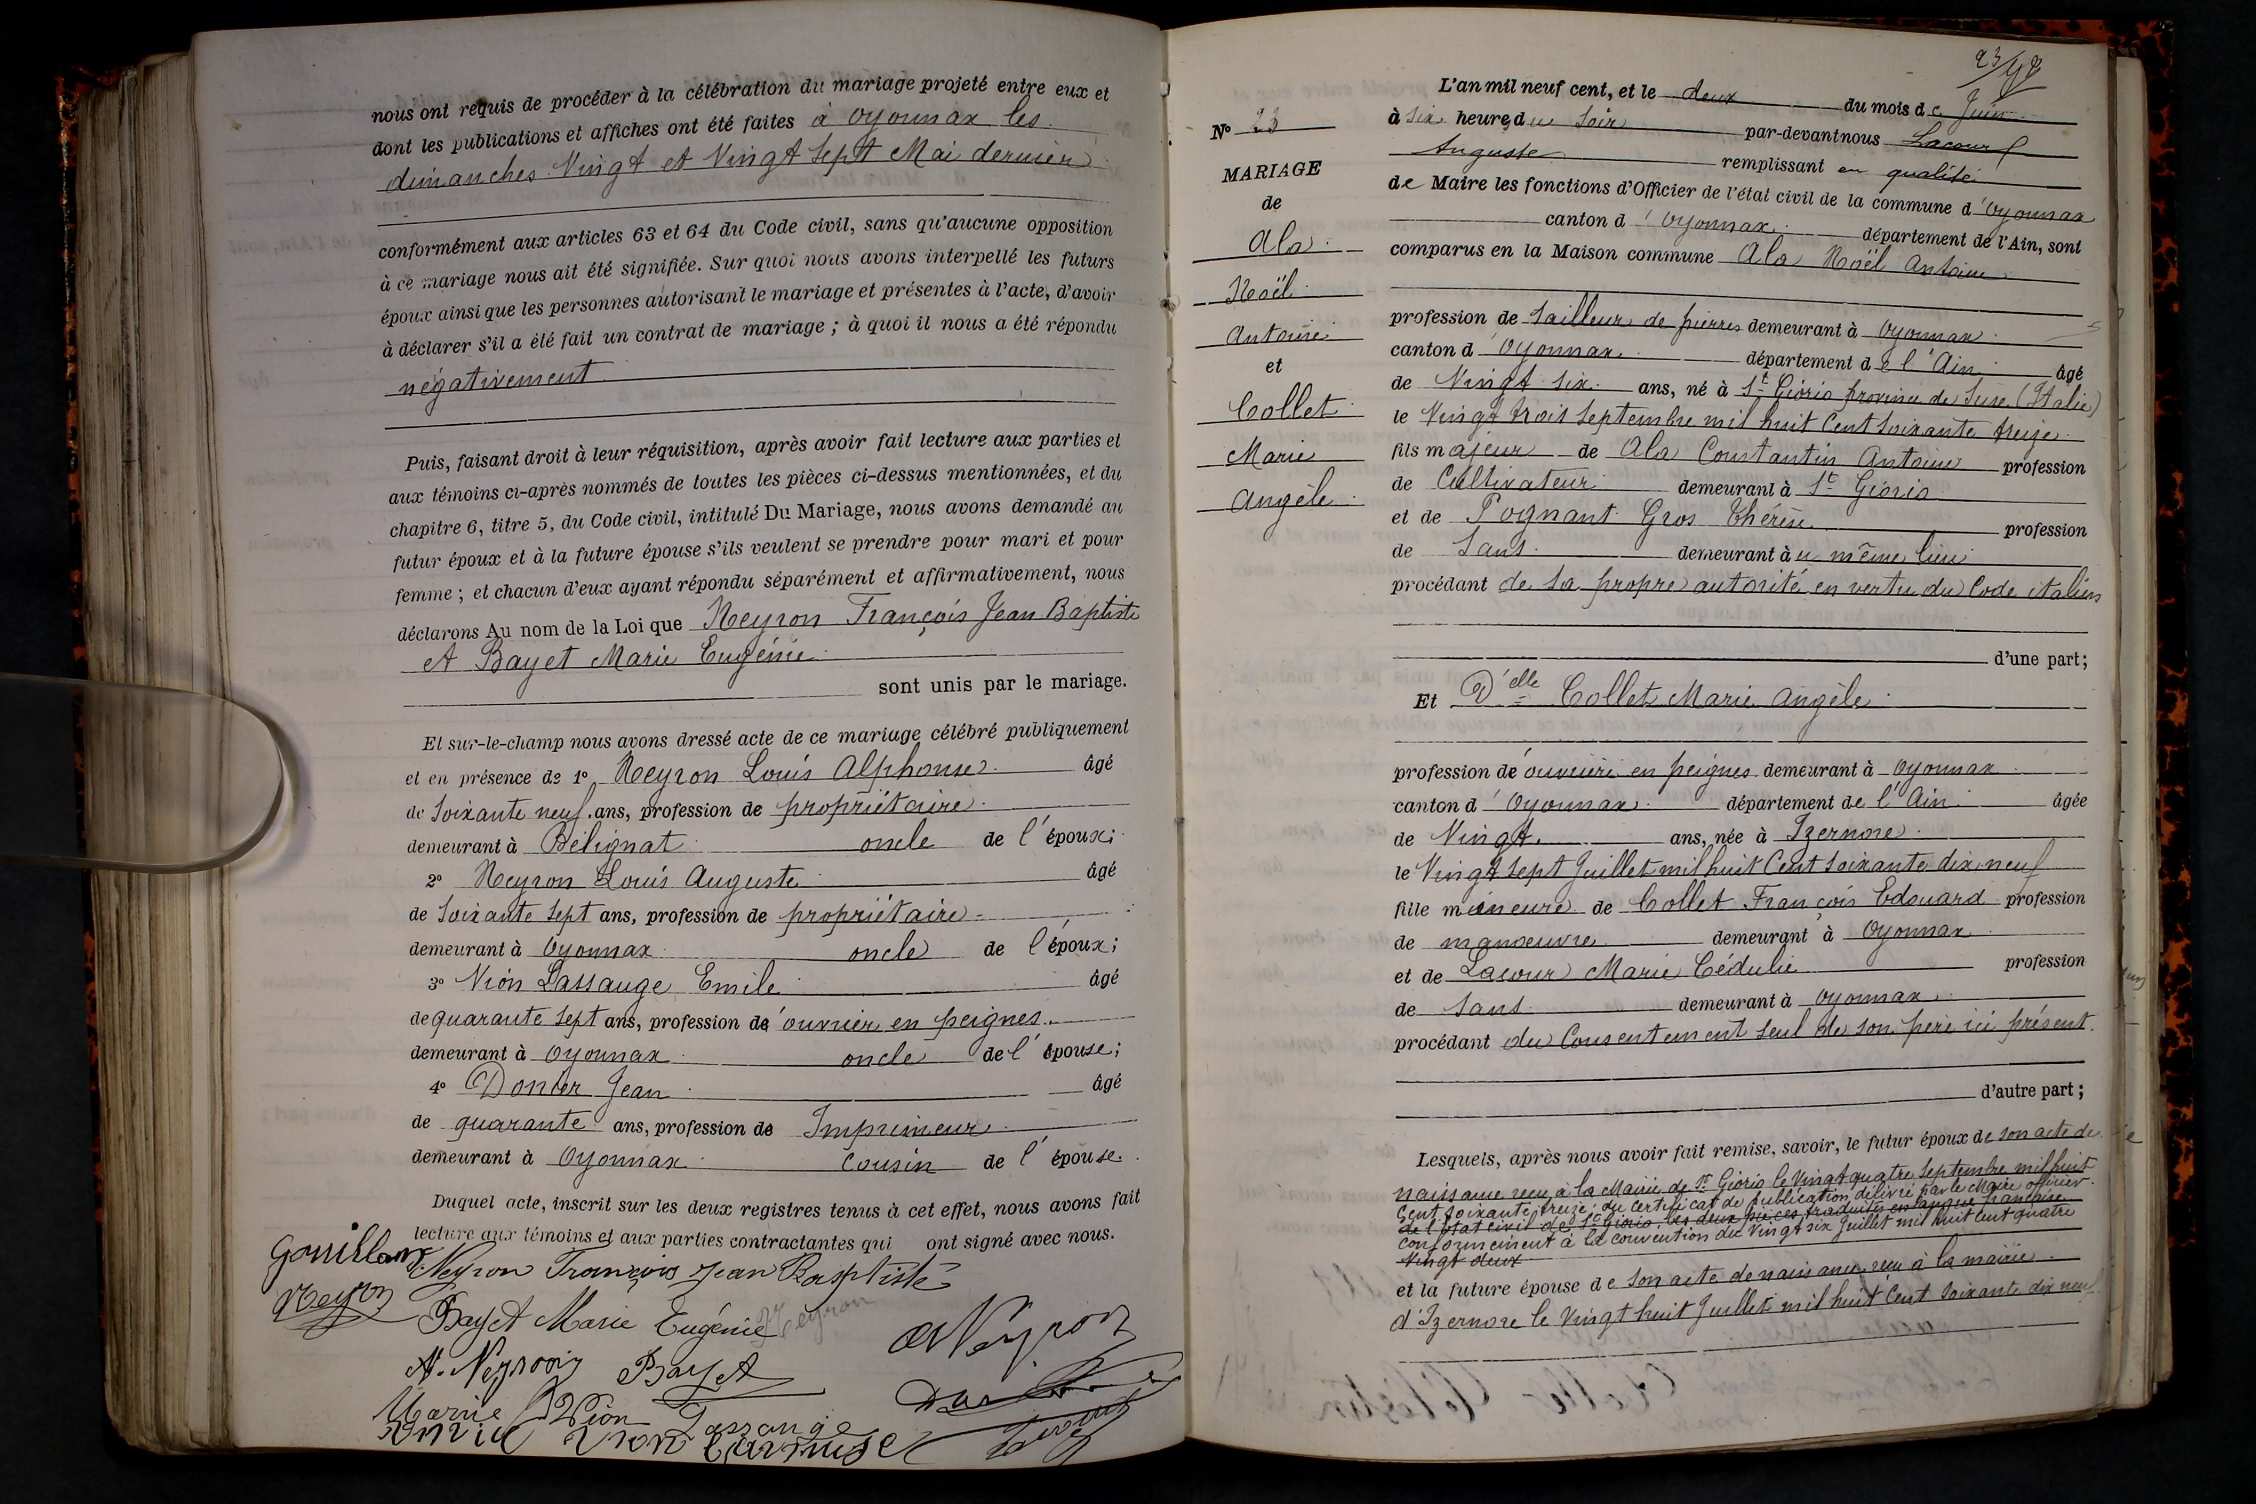 nous ont requis de procéder à la célébration du mariage projeté entre eux et
dont les publications et affiches ont été faites à Oyonnax les
dimanches Vingt et Vingt Sept Mai dernier
conformément aux articles 63 et 64 du Code civil, sans qu'aucune opposition
à ce mariage nous ait été signifiée. Sur quoi nous avons interpellé les futurs
époux ainsi que les personnes autorisant le mariage et présentes à l'acte, d'avoir
à déclarer s'il a été fait un contrat de mariage ; à quoi il nous a été répondu
négativement
Puis, faisant droit à leur réquisition, après avoir fait lecture aux parties et
aux témoins ci-après nommés de toutes les pièces ci-dessus mentionnées, et du
chapitre 6, titre 5, du Code civil, intitulé Du Mariage, nous avons demandé au
futur époux et à la future épouse s'ils veulent se prendre pour mari et pour
femme ; et chacun d'eux ayant répondu séparément et affirmativement, nous
déclarons Au nom de la Loi que Neyron François Jean Baptiste
et Bayet Marie Eugénie
sont unis par le mariage.
Et sur-le-champ nous avons dressé acte de ce mariage célébré publiquement
et en présence de 1° Neyron Louis Alphonse âgé
de Soixante neuf ans, profession de propriétaire
demeurant à Bélignat oncle de l'époux;
2° Neyron Louis Auguste âgé
de Soixante Sept ans, profession de propriétaire
demeurant à Oyonnax oncle de l'époux;
3° Nion Lassauge Emile âgé
de quarante Sept ans, profession d'ouvrier en peignes
demeurant à Oyonnax oncle de l'épouse;
4° Donier Jean âgé
de quarante ans, profession de Imprimeur
demeurant à Oyonnax Cousin de l'épouse.
Duquel acte, inscrit sur les deux registres tenus à cet effet, nous avons fait
lecture aux témoins et aux parties contractantes qui ont signé avec nous.
Neyron François Jean Baptiste
Neyron
Bayet Marie Eugénie
Neyron
A. Neyron Bayet
Marie
23/48
N° 23
MARIAGE
de
Ala
Noël
Antoine
et
Collet
Marie
Angèle
L'an mil neuf cent, et le deux du mois de Juin
à Six heures du Soir par-devant nous Lacour
Auguste remplissant en qualité
de Maire les fonctions d'Officier de l'état civil de la commune d'Oyonnax
canton d'Oyonnax département de l'Ain, sont
comparus en la Maison commune Ala Noël Antoine
profession de tailleur de pierres demeurant à Oyonnax
canton d'Oyonnax département de l'Ain âgé
de Vingt Six ans, né à St Giorio province de Suse (Italie)
le Vingt trois Septembre mil huit Cent Soixante treize
fils majeur de Ala Constantin Antoine profession
de Cultivateur demeurant à St Giorio
et de Pognant Gros Thérèse profession
de Sans demeurant au même lieu
procédant de sa propre autorité en vertu du Code italien
d'une part;
Et D'elle Collet Marie Angèle
profession d'ouvrière en peignes demeurant à Oyonnax
canton d'Oyonnax département de l'Ain âgée
de Vingt ans, née à Izernore
le Vingt Sept Juillet mil huit Cent Soixante dix neuf
fille mineure de Collet François Edouard profession
de manœuvre demeurant à Oyonnax
et de Lacour Marie Cédulie profession
de Sans demeurant à Oyonnax
procédant du Consentement seul de son père ici présent.
d'autre part;
Lesquels, après nous avoir fait remise, savoir, le futur époux de son acte de
naissance reçu à la Mairie de St Giorio le Vingt quatre Septembre mil huit
Cent Soixante treize; du certificat de publication délivré par le Maire officier
de l'Etat civil de St Giorio, les deux pièces traduites en langue française
conformément à la convention du Vingt six Juillet mil huit cent quatre
Vingt deux
et la future épouse de son acte de naissance reçu à la mairie
d'Izernore le Vingt huit Juillet mil huit Cent Soixante dix neuf